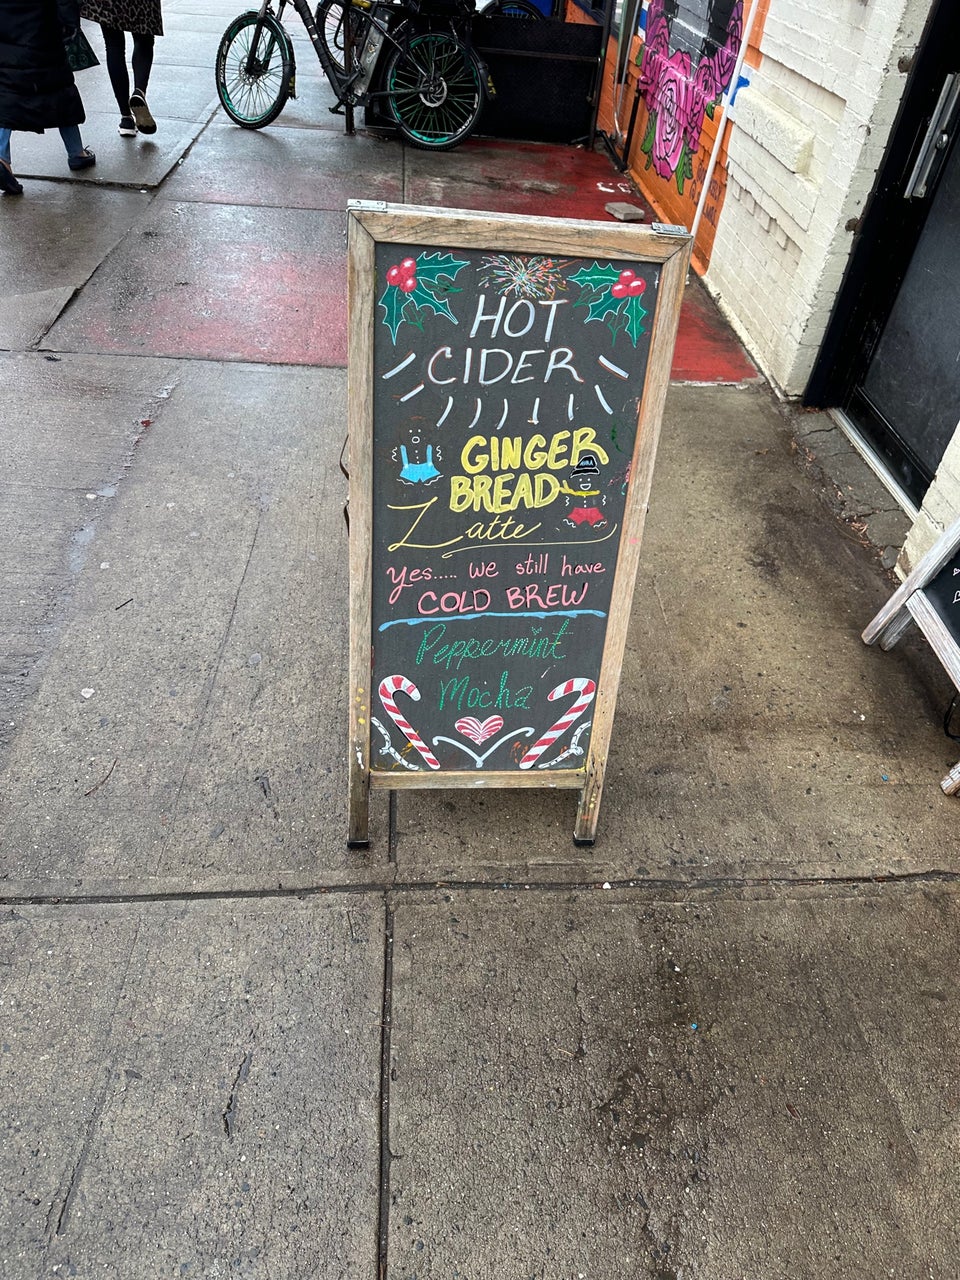 HOT
CIDER
GINGER
BREAD
Latte
Yes..... we still have
COLD BREW
Peppermint
Mocha